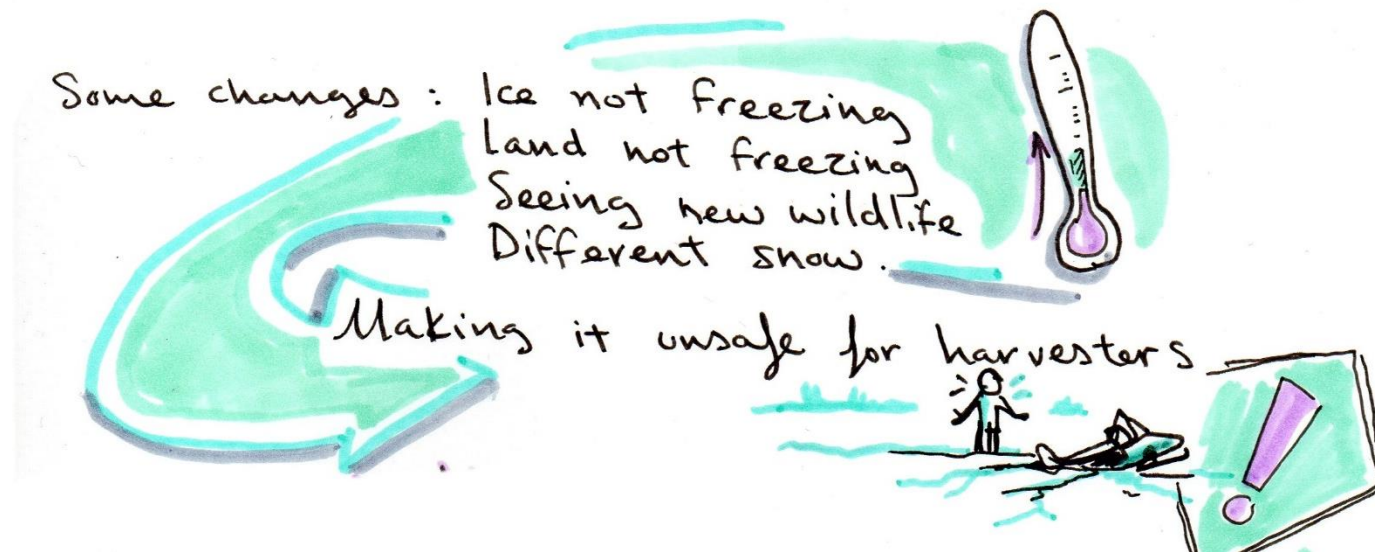 Some changes : Ice not freezing
Land not freezing
Seeing new wildlife
Different snow.
Making it unsafe for harvesters
!